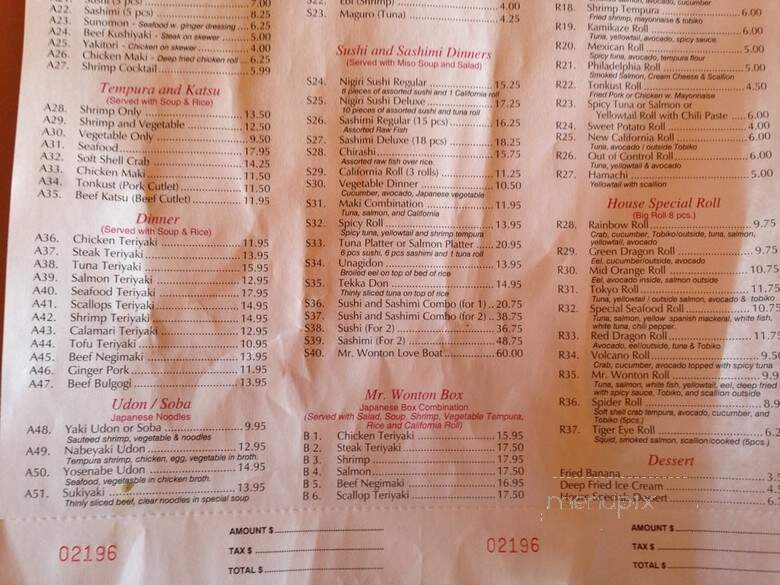 A21. Sushi (5 pcs) 7.00
A22. Sashimi (5 pcs) 8.25
A23. Sunomon - Seafood w. ginger dressing 6.25
A24. Beef Kushiyaki - Steak on skewer 5.00
A25. Yakitori - Chicken on skewer 4.00
A26. Chicken Maki - Deep fried chicken roll 6.25
A27. Shrimp Cocktail 5.99
Tempura and Katsu
(Served with Soup & Rice)
A28. Shrimp Only 13.50
A29. Shrimp and Vegetable 12.50
A30. Vegetable Only 9.50
A31. Seafood 17.95
A32. Soft Shell Crab 14.25
A33. Chicken Maki 11.50
A34. Tonkust (Pork Cutlet) 11.50
A35. Beef Katsu (Beef Cutlet) 11.95
Dinner
(Served with Soup & Rice)
A36. Chicken Teriyaki 11.95
A37. Steak Teriyaki 13.95
A38. Tuna Teriyaki 15.95
A39. Salmon Teriyaki 12.95
A40. Seafood Teriyaki 17.95
A41. Scallops Teriyaki 14.95
A42. Shrimp Teriyaki 14.95
A43. Calamari Teriyaki 12.95
A44. Tofu Teriyaki 10.95
A45. Beef Negimaki 13.95
A46. Ginger Pork 11.95
A47. Beef Bulgogi 13.95
Udon / Soba
Japanese Noodles
A48. Yaki Udon or Soba 9.95
Sauteed shrimp, vegetable & noodles
A49. Nabeyaki Udon 12.95
Tempura shrimp, chicken, egg, vegetable in broth.
A50. Yosenabe Udon 14.95
Seafood, vegetasble in chicken broth.
A51. Sukiyaki 13.95
Thinly sliced beef, clear noodles in special soup
S22. Ebi (Shrimp) 4.00
S23. Maguro (Tuna) 4.25
Sushi and Sashimi Dinners
(Served with Miso Soup and Salad)
S24. Nigiri Sushi Regular 15.25
8 pieces of assorted sushi and 1 California roll
S25. Nigiri Sushi Deluxe 17.25
10 pieces of assorted sushi and tuna roll
S26. Sashimi Regular (15 pcs) 16.25
Assorted Raw Fish
S27. Sashimi Deluxe (18 pcs) 18.25
S28. Chirashi 15.75
Assorted raw fish over rice.
S29. California Roll (3 rolls) 11.25
S30. Vegetable Dinner 10.50
Cucumber, avocado, Japanese vegetable
S31. Maki Combination 11.95
Tuna, salmon, and California
S32. Spicy Roll 13.95
Spicy tuna, yellowtail and shrimp tempura
S33. Tuna Platter or Salmon Platter 20.95
6 pcs sushi, 6 pcs sashimi and 1 tuna roll
S34. Unagidon 13.95
Broiled eel on top of bed of rice
S35. Tekka Don 14.95
Thinly sliced tuna on top of rice
S36. Sushi and Sashimi Combo (for 1) 20.75
S37. Sushi and Sashimi Combo (for 2) 38.75
S38. Sushi (For 2) 36.75
S39. Sashimi (For 2) 48.75
S40. Mr. Wonton Love Boat 60.00
Mr. Wonton Box
Japanese Box Combination
(Served with Salad, Soup, Shrimp, Vegetable Tempura,
Rice and California Roll)
B 1. Chicken Teriyaki 15.95
B 2. Steak Teriyaki 17.50
B 3. Shrimp 17.95
B 4. Salmon 17.50
B 5. Beef Negimaki 16.95
B 6. Scallop Teriyaki 17.50
salmon, avocado, cucumber
R18. Shrimp Tempura 6.00
Fried shrimp, mayonnaise & tobiko
R19. Kamikaze Roll 6.00
Tuna, yellowtail, avocado, spicy sauce.
R20. Mexican Roll 5.00
Spicy tuna, avocado, tempura flour
R21. Philadelphia Roll 5.00
Smoked Salmon, Cream Cheese & Scallion
R22. Tonkust Roll 4.50
Fried Pork or Chicken w. Mayonnaise
R23. Spicy Tuna or Salmon or
Yellowtail Roll with Chili Paste 6.00
R24. Sweet Potato Roll 4.00
R25. New California Roll 6.00
Tuna, avocado / outside Tobiko
R26. Out of Control Roll 6.00
Tuna, yellowtail & avocado
R27. Hamachi 5.00
Yellowtail with scallion
House Special Roll
(Big Roll 8 pcs.)
R28. Rainbow Roll 9.75
Crab, cucumber, Tobiko/outside, tuna, salmon,
yellowtail, avocado
R29. Green Dragon Roll 9.75
Eel, cucumber/outside, avocado
R30. Mid Orange Roll 10.75
Eel, avocado inside, salmon outside
R31. Tokyo Roll 11.75
Tuna, yellowtail / outside salmon, avocado & tobiko
R32. Special Seafood Roll 10.75
Tuna, salmon, yellow spanish mackeral, white fish,
white tuna, chili pepper.
R33. Red Dragon Roll 11.75
Avocado, eel/outside, tuna & Tobiko
R34. Volcano Roll 9.50
Crab, cucumber, avocado topped with spicy tuna
R35. Mr. Wonton Roll 9.9
Tuna, salmon, white fish, yellowtail, eel, deep fried
with spicy sauce, Tobiko, and scallion outside
R36. Spider Roll 8.9
Soft shell crab tempura, avocado, cucumber, and
Tobiko (5pcs.)
R37. Tiger Eye Roll 6.2
Squid, smoked salmon, scallion/cooked (5pcs.)
Dessert
Fried Banana 3.5
Deep Fried Ice Cream 4.5
House Special Dessert 6.
menupix
02196
AMOUNT $
TAX $
TOTAL $
02196
AMOUNT $
TAX $
TOTAL $